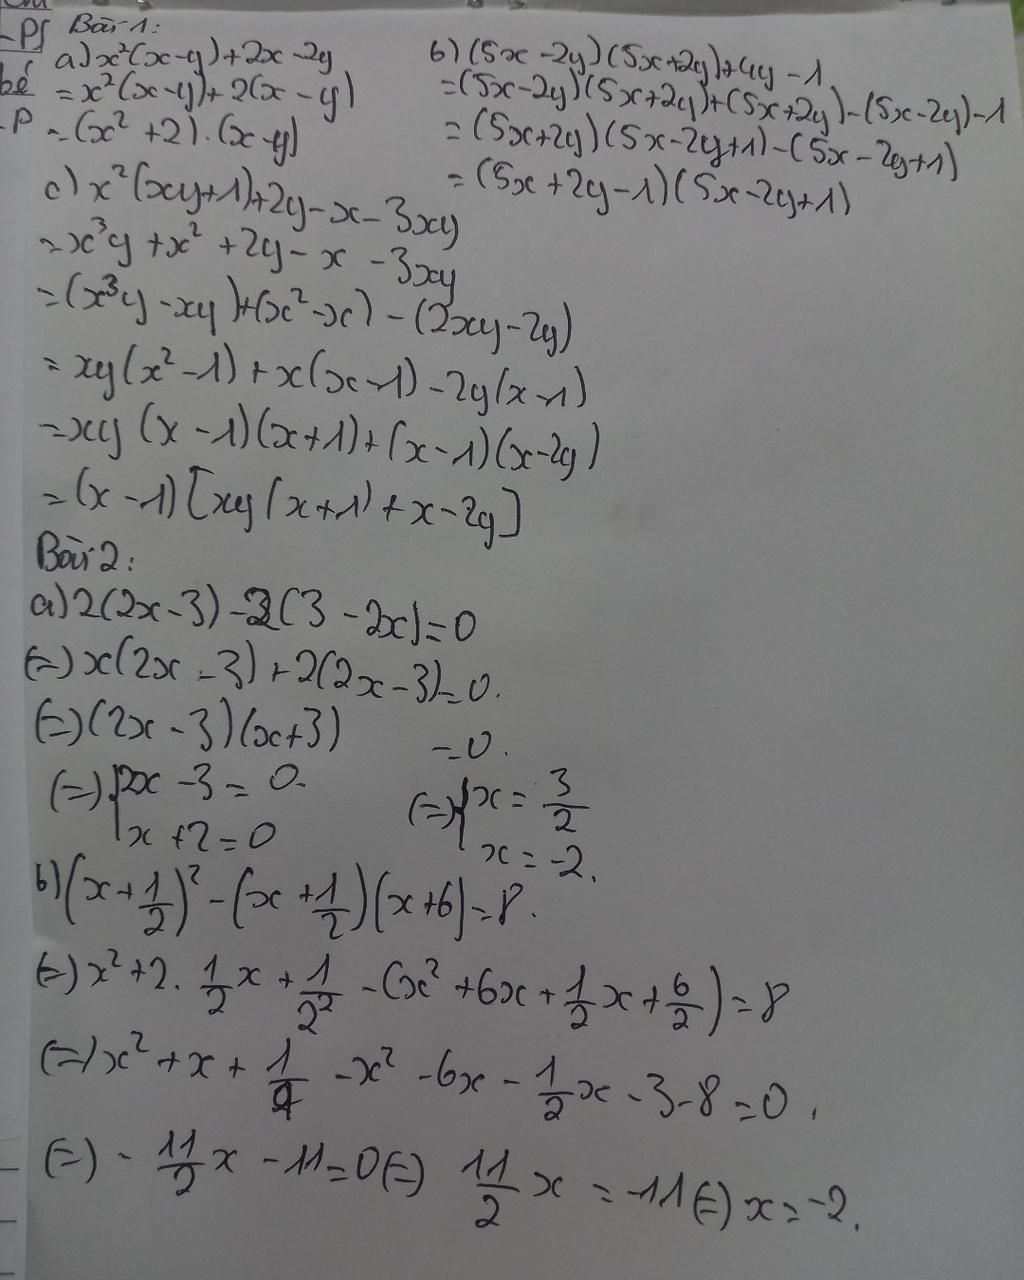 -Ps
bé
-P
Bài 1:
a) x²(x-y)+2x-2y
= x²(x-y)+2(x-y)
= (x²+2).(x-y)
b) (5x-2y)(5x+2y)+4y-1
= (5x-2y)(5x+2y)+(5x+2y)-(5x-2y)-1
= (5x+2y)(5x-2y+1)-(5x-2y+1)
= (5x+2y-1)(5x-2y+1)
c) x²(xy+1)+2y-x-3xy
= x³y+x²+2y-x-3xy
= (x³y-xy)+(x²-x)-(2xy-2y)
= xy(x²-1)+x(x-1)-2y(x-1)
= xy(x-1)(x+1)+(x-1)(x-2y)
= (x-1)[xy(x+1)+x-2y]
Bài 2:
a) 2(2x-3)-2(3-2x)=0
(=) x(2x-3)+2(2x-3)=0.
(=) (2x-3)(x+3) =0.
(=) { 2x-3=0. (=) { x=3/2
x+2=0 x=-2.
b) (x+1/2)²-(x+1/2)(x+6)=8.
(=) x²+2.1/2x+1/2²-(x²+6x+1/2x+6/2)=8
(=) x²+x+1/4-x²-6x-1/2x-3-8=0.
(=) -11/2x-11=0 (=) 11/2x=-11 (=) x=-2.